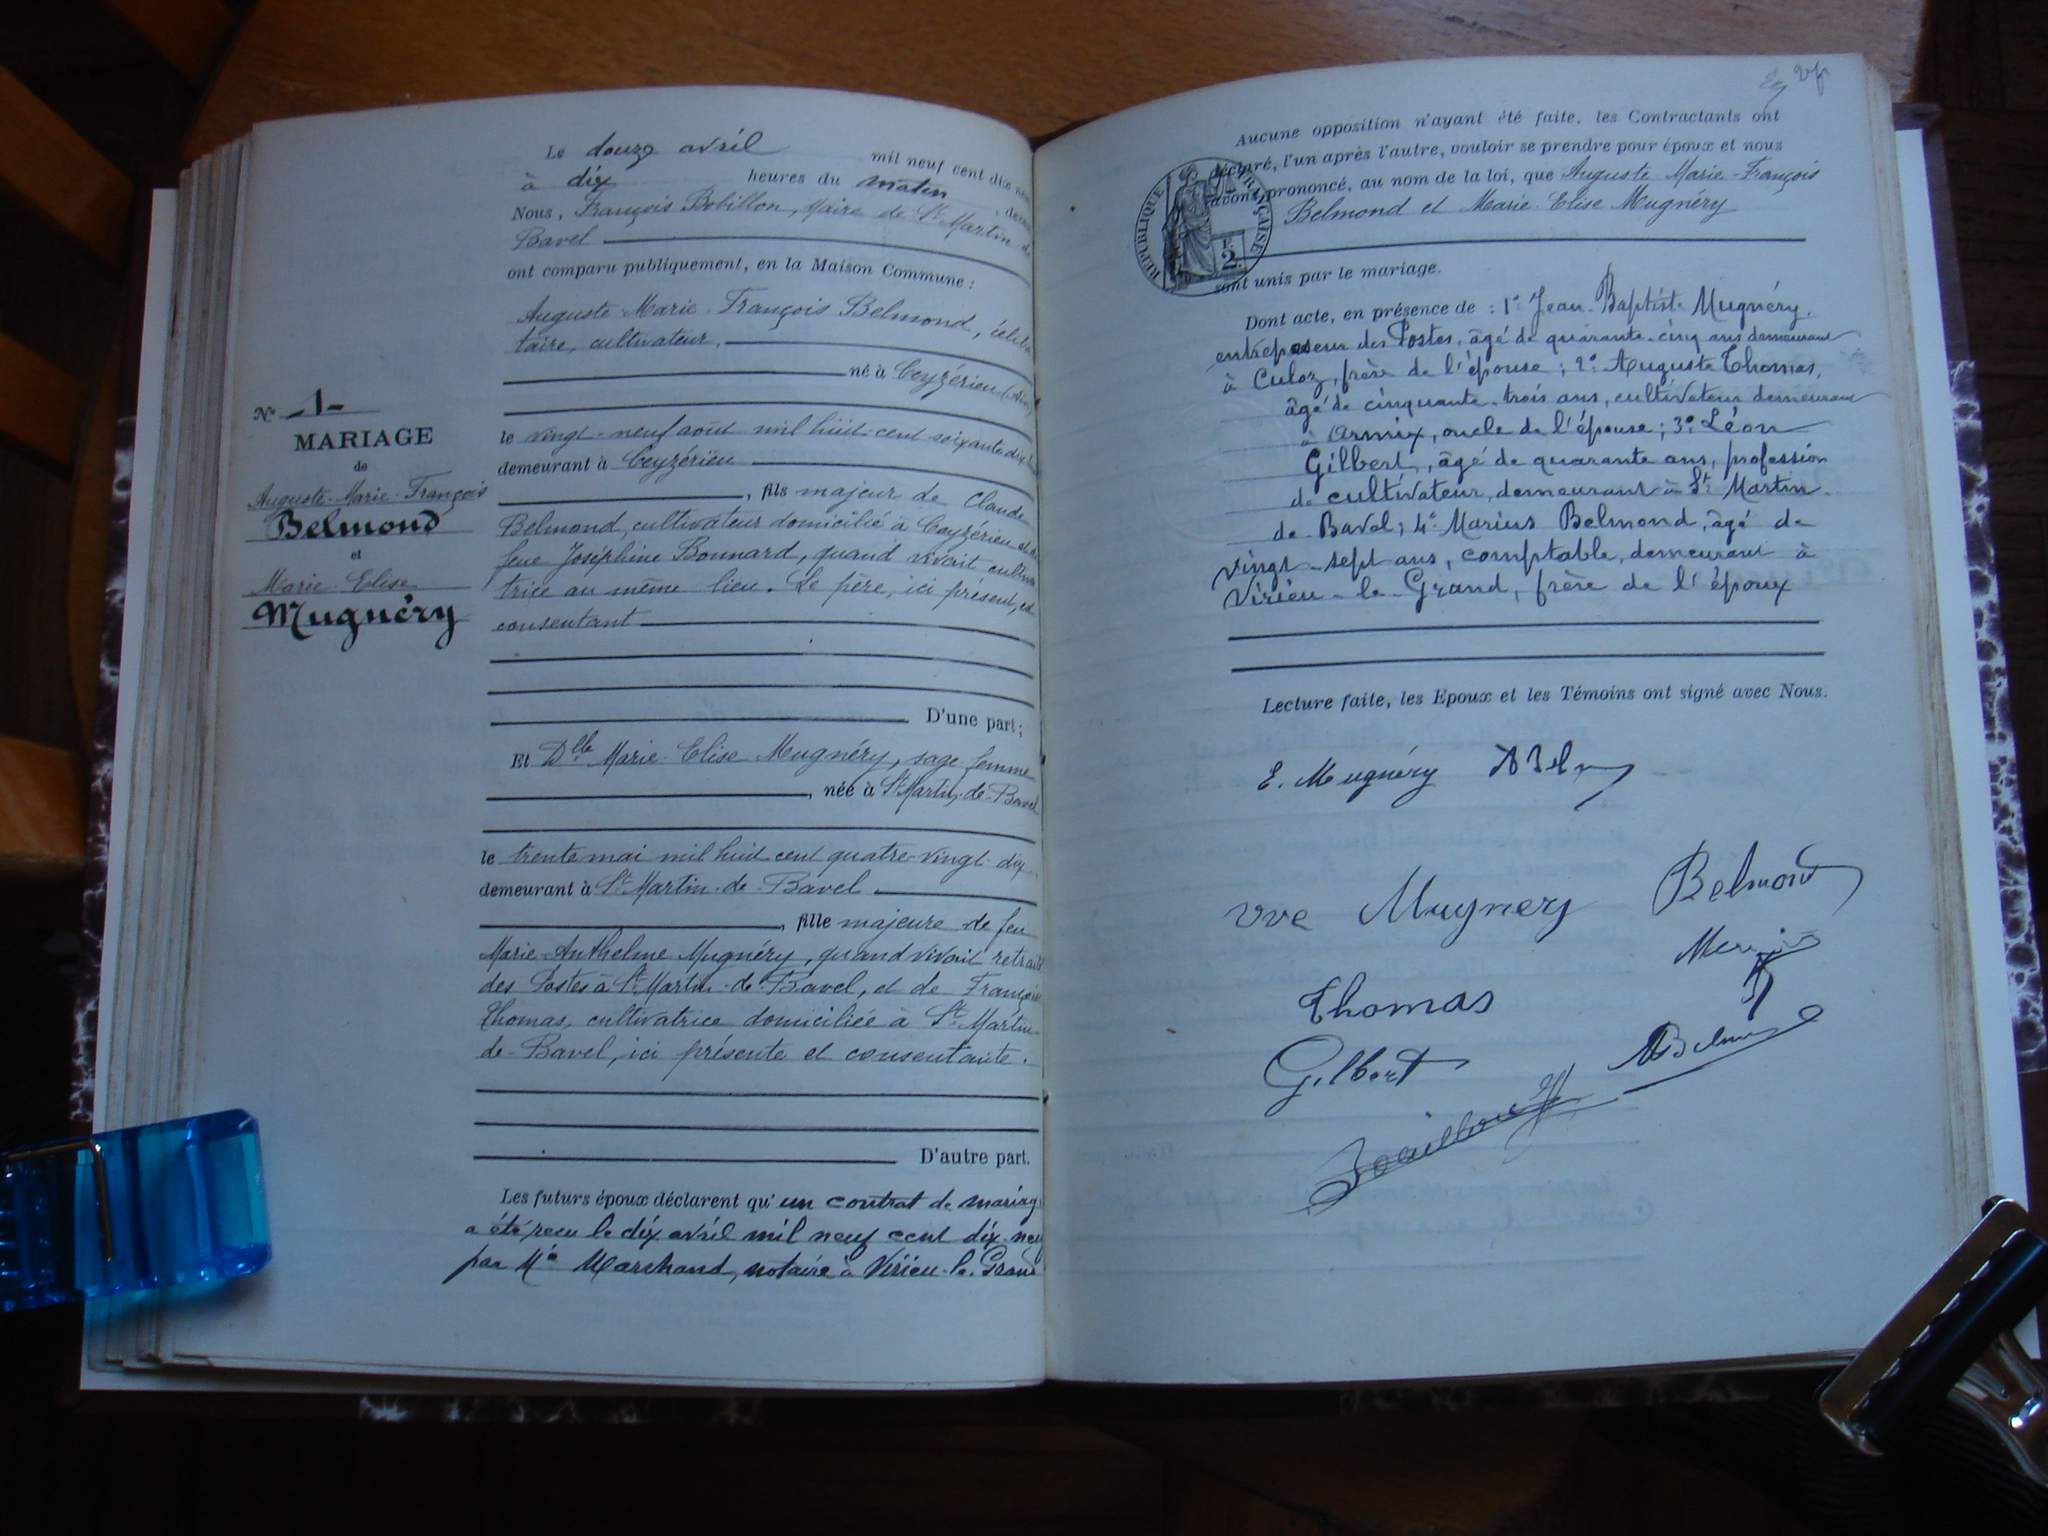 Le douze avril mil neuf cent dix neuf
à dix heures du matin, deva
Nous, François Bobillon, Maire de St Martin-de
Bavel
ont comparu publiquement, en la Maison Commune :
Auguste-Marie-François Belmond, céliba
taire, cultivateur,
né à Ceyzérieu (Ain)
le vingt-neuf août mil huit cent soixante dix
demeurant à Ceyzérieu
, fils majeur de Claude
Belmond, cultivateur domicilié à Ceyzérieu et de
feue Joséphine Bonnard, quand vivait cultiva
trice au même lieu. Le père, ici présent, et
consentant
D'une part ;
Et Dlle Marie-Elise Mugnéry, sage femme
, née à St Martin-de-Bavel
le trente mai mil huit cent quatre-vingt-dix
demeurant à St Martin-de-Bavel
, fille majeure de feu
Marie-Anthelme Mugnéry, quand vivait retrait
des Postes à St Martin-de-Bavel, et de Françoise
Thomas, cultivatrice domiciliée à St Martin-
de-Bavel, ici présente et consentante.
D'autre part.
Les futurs époux déclarent qu'un contrat de mariage
a été reçu le dix avril mil neuf cent dix-neuf
par Me Marchand, notaire à Virieu-le-Grand
No 1
MARIAGE
de
Auguste-Marie-François
Belmond
et
Marie-Elise
Mugnéry
Aucune opposition n'ayant été faite, les Contractants ont
déclaré, l'un après l'autre, vouloir se prendre pour époux et nous
avons prononcé, au nom de la loi, que Auguste Marie-François
Belmond et Marie-Elise Mugnéry
sont unis par le mariage.
RÉPUBLIQUE FRANÇAISE
Dont acte, en présence de : 1° Jean-Baptiste Mugnéry,
entreposeur des Postes, âgé de quarante-cinq ans demeurant
à Culoz, frère de l'épouse ; 2° Auguste Thomas,
âgé de cinquante-trois ans, cultivateur demeurant
à Armix, oncle de l'épouse ; 3° Léon
Gilbert, âgé de quarante ans, profession
de cultivateur, demeurant à St Martin-
de Bavel ; 4° Marius Belmond, âgé de
vingt-sept ans, comptable, demeurant à
Virieu-le-Grand, frère de l'époux
Lecture faite, les Epoux et les Témoins ont signé avec Nous.
E. Mugnéry ABelm
Vve Mugnery Belmond
Thomas
Gilbert MBelmond
Bobillon